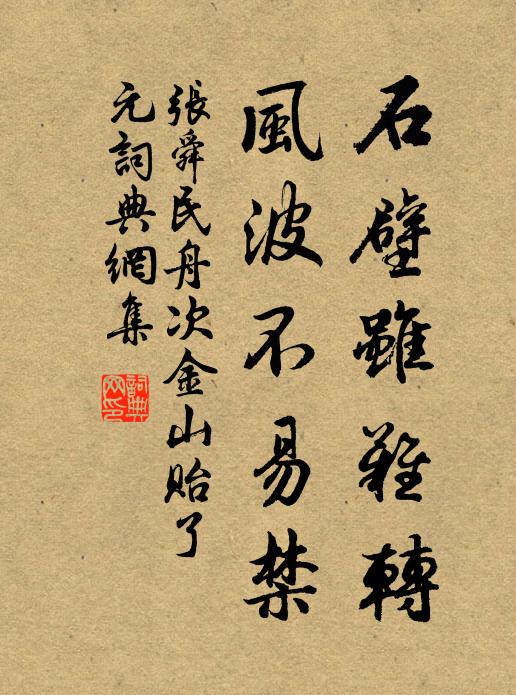 石壁雖難轉
風波不易禁
張舜民舟次金山貽了
元詞典網集
詞典網印